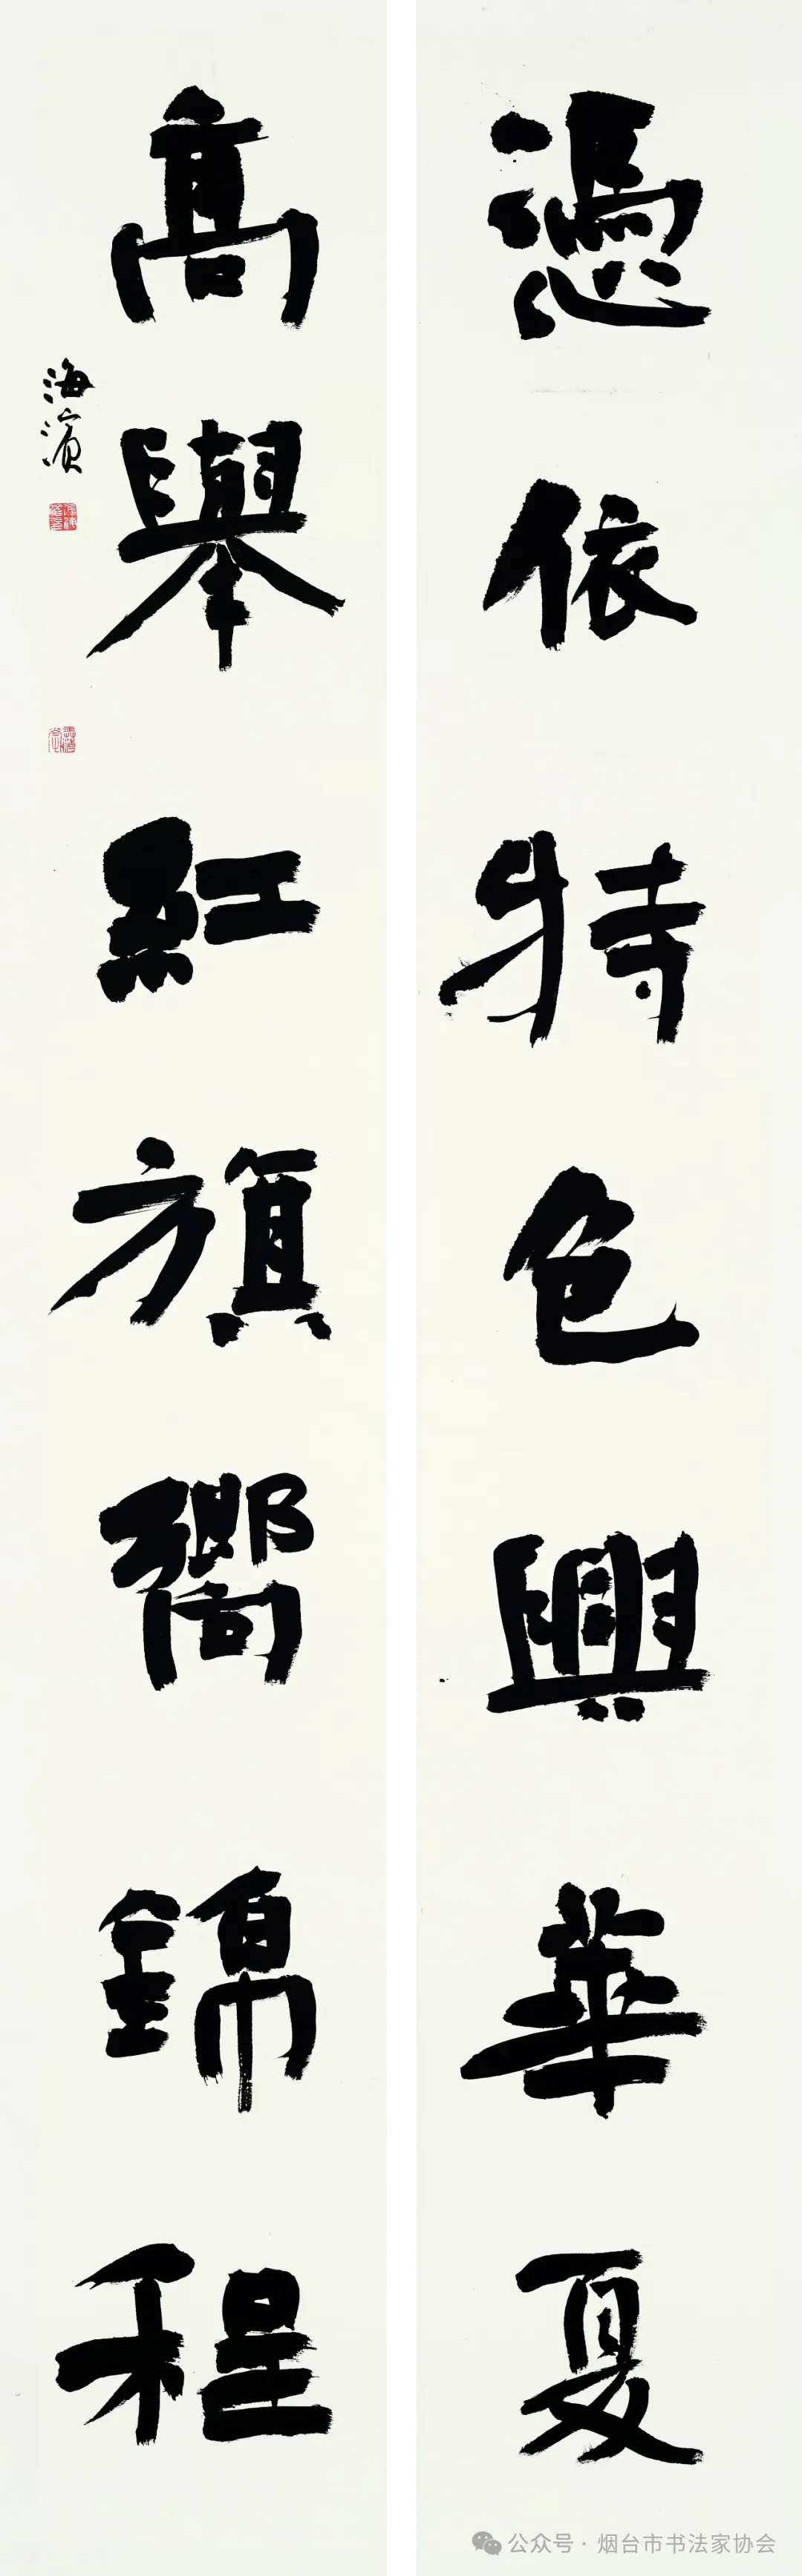 憑依特色興華夏
高舉紅旗嚮錦程
海濱
公众号·烟台市书法家协会